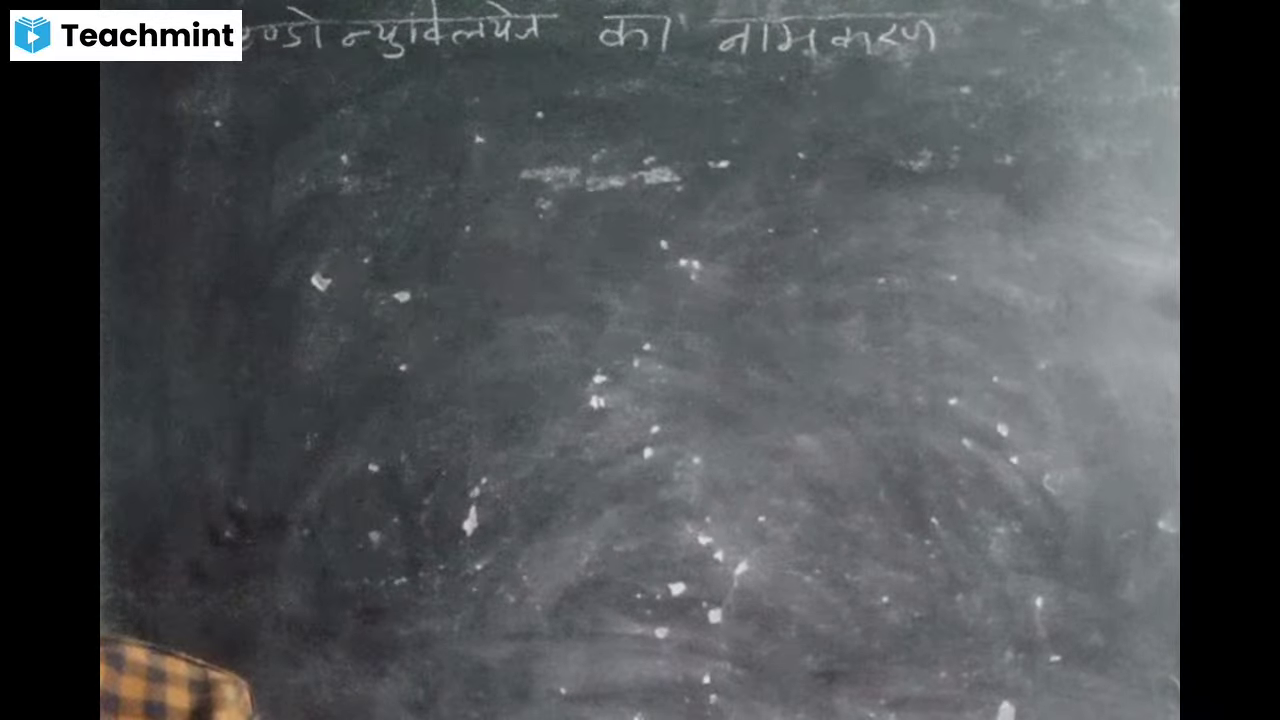 Teachmint
एण्डो न्युक्लियेज का नामकरण